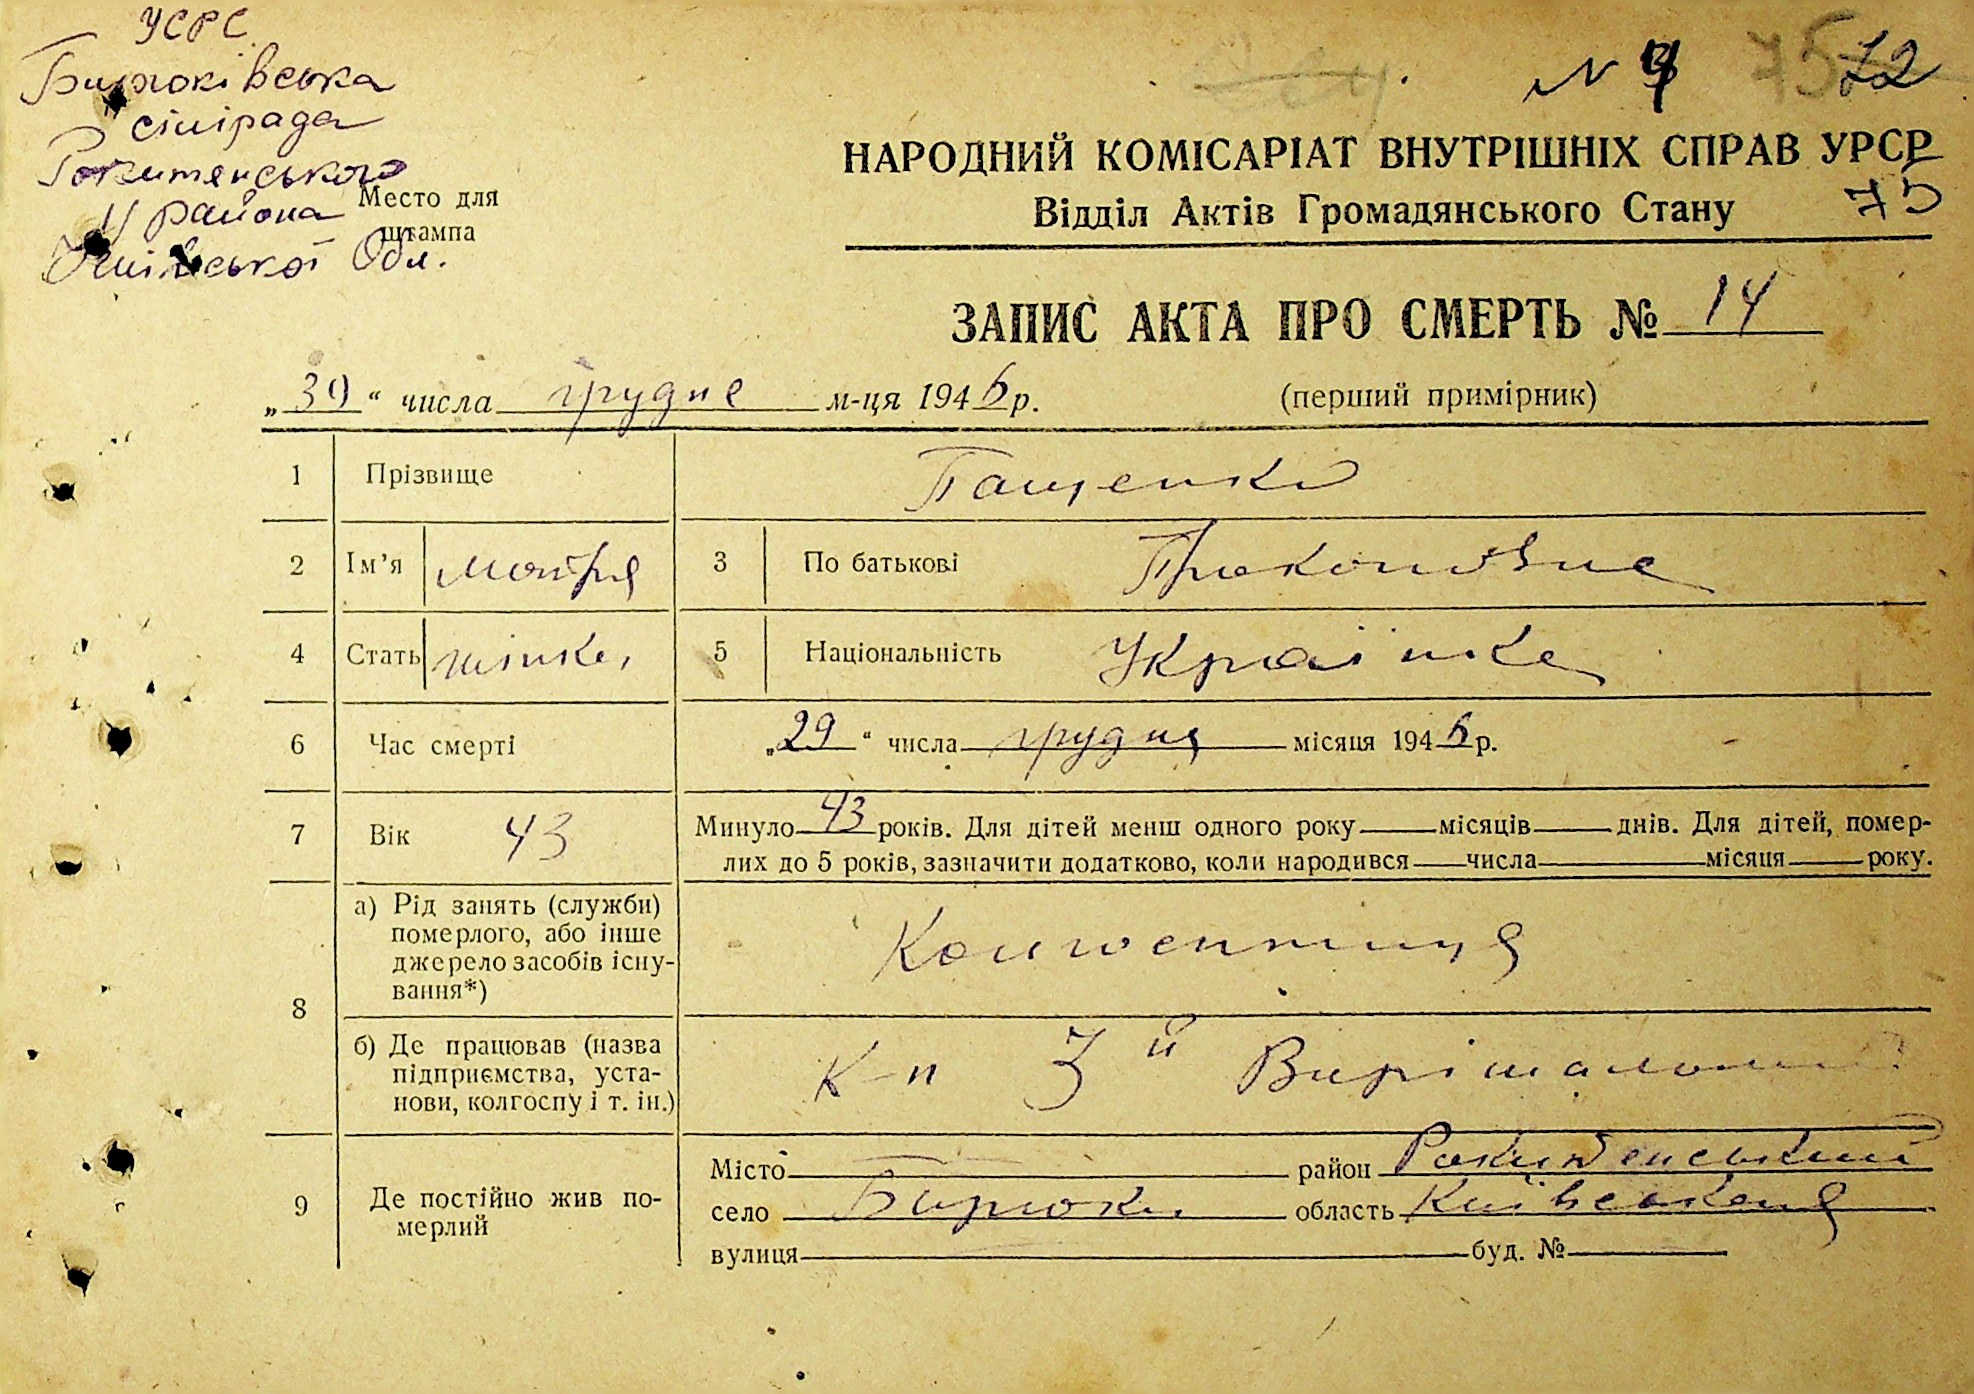 УСРС
Бирюківська
сілірада
Рокитянського
району
Київської Обл.
Место для
штампа
№ 72
75
НАРОДНИЙ КОМІСАРІАТ ВНУТРІШНІХ СПРАВ УРСР
75
Відділ Актів Громадянського Стану
ЗАПИС АКТА ПРО СМЕРТЬ № 14
„30“ числа грудня м-ця 1946 р. (перший примірник)
1 Прізвище Пащенко
2 Ім’я Мотря 3 По батькові Прокоповна
4 Стать жінка 5 Національність Українка
6 Час смерті „29“ числа грудня місяця 1946 р.
7 Вік 43 Минуло 43 років. Для дітей менш одного року місяців днів. Для дітей, помер-
лих до 5 років, зазначити додатково, коли народився числа місяця року.
8 а) Рід занять (служби)
померлого, або інше
джерело засобів існу-
вання*)
Колгоспниця
б) Де працював (назва
підприємства, уста-
нови, колгоспу і т. ін.)
К-п 3й Вирішальний
9 Де постійно жив по-
мерлий
Місто район Рокитенський
село Бирюки область Київська
вулиця буд. №